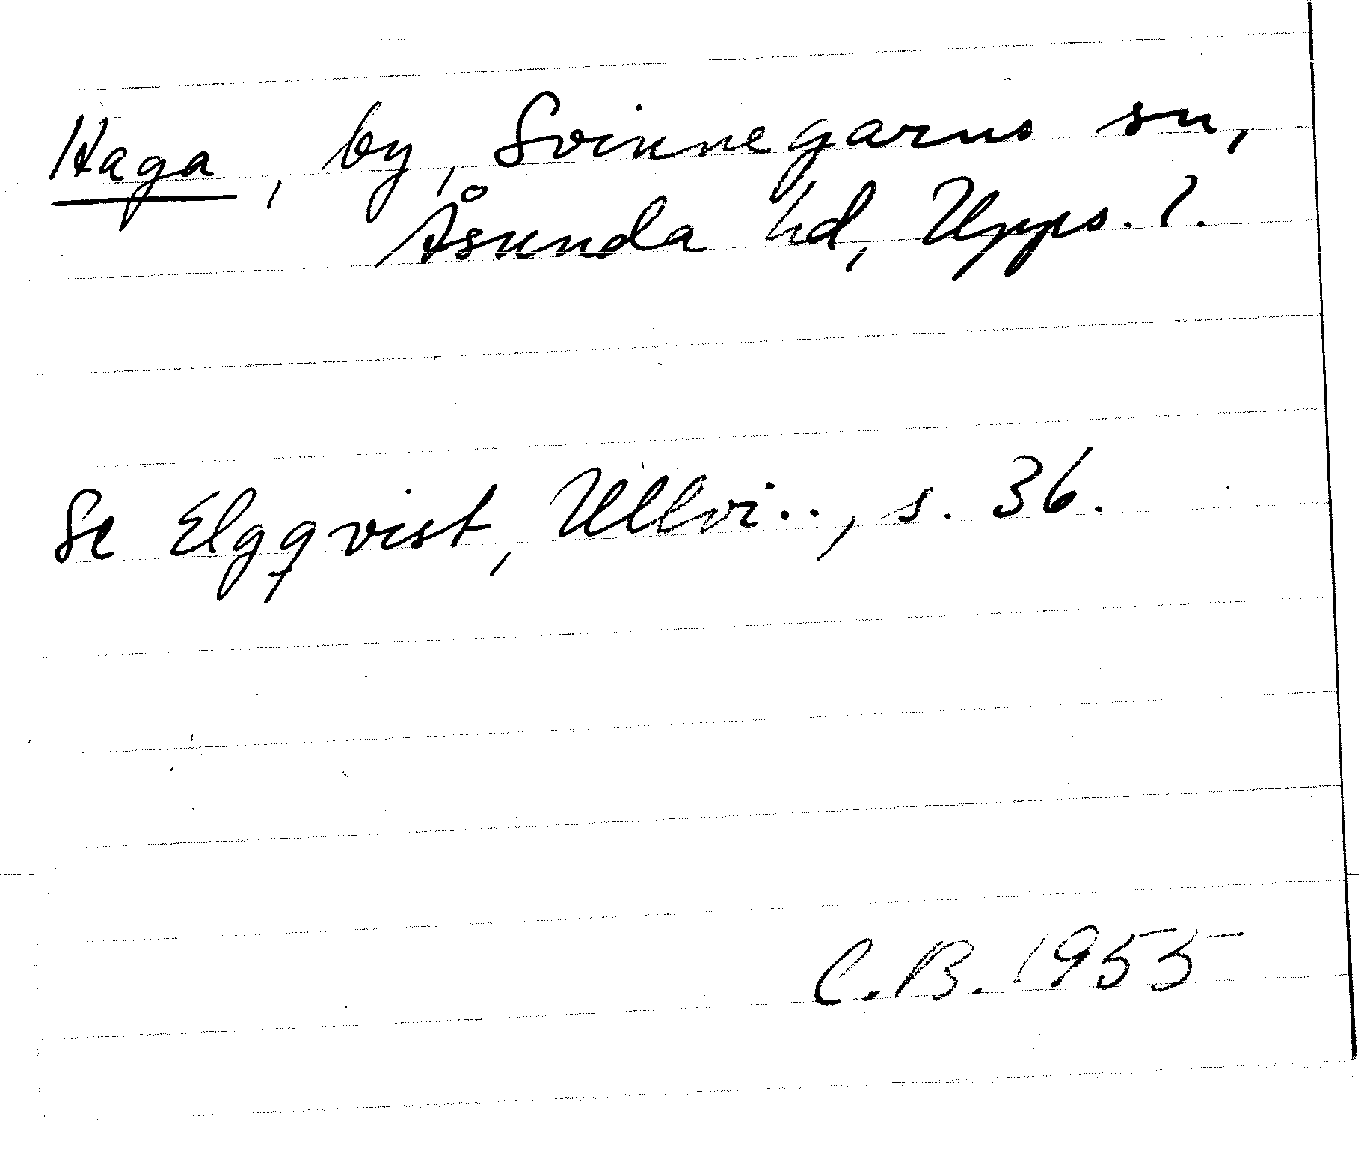 Haga, by, Svinnegarns sn,
Åsunda hd, Upps. l.
Se Elgqvist, Ullvi.., s. 36.
C.B. 1955